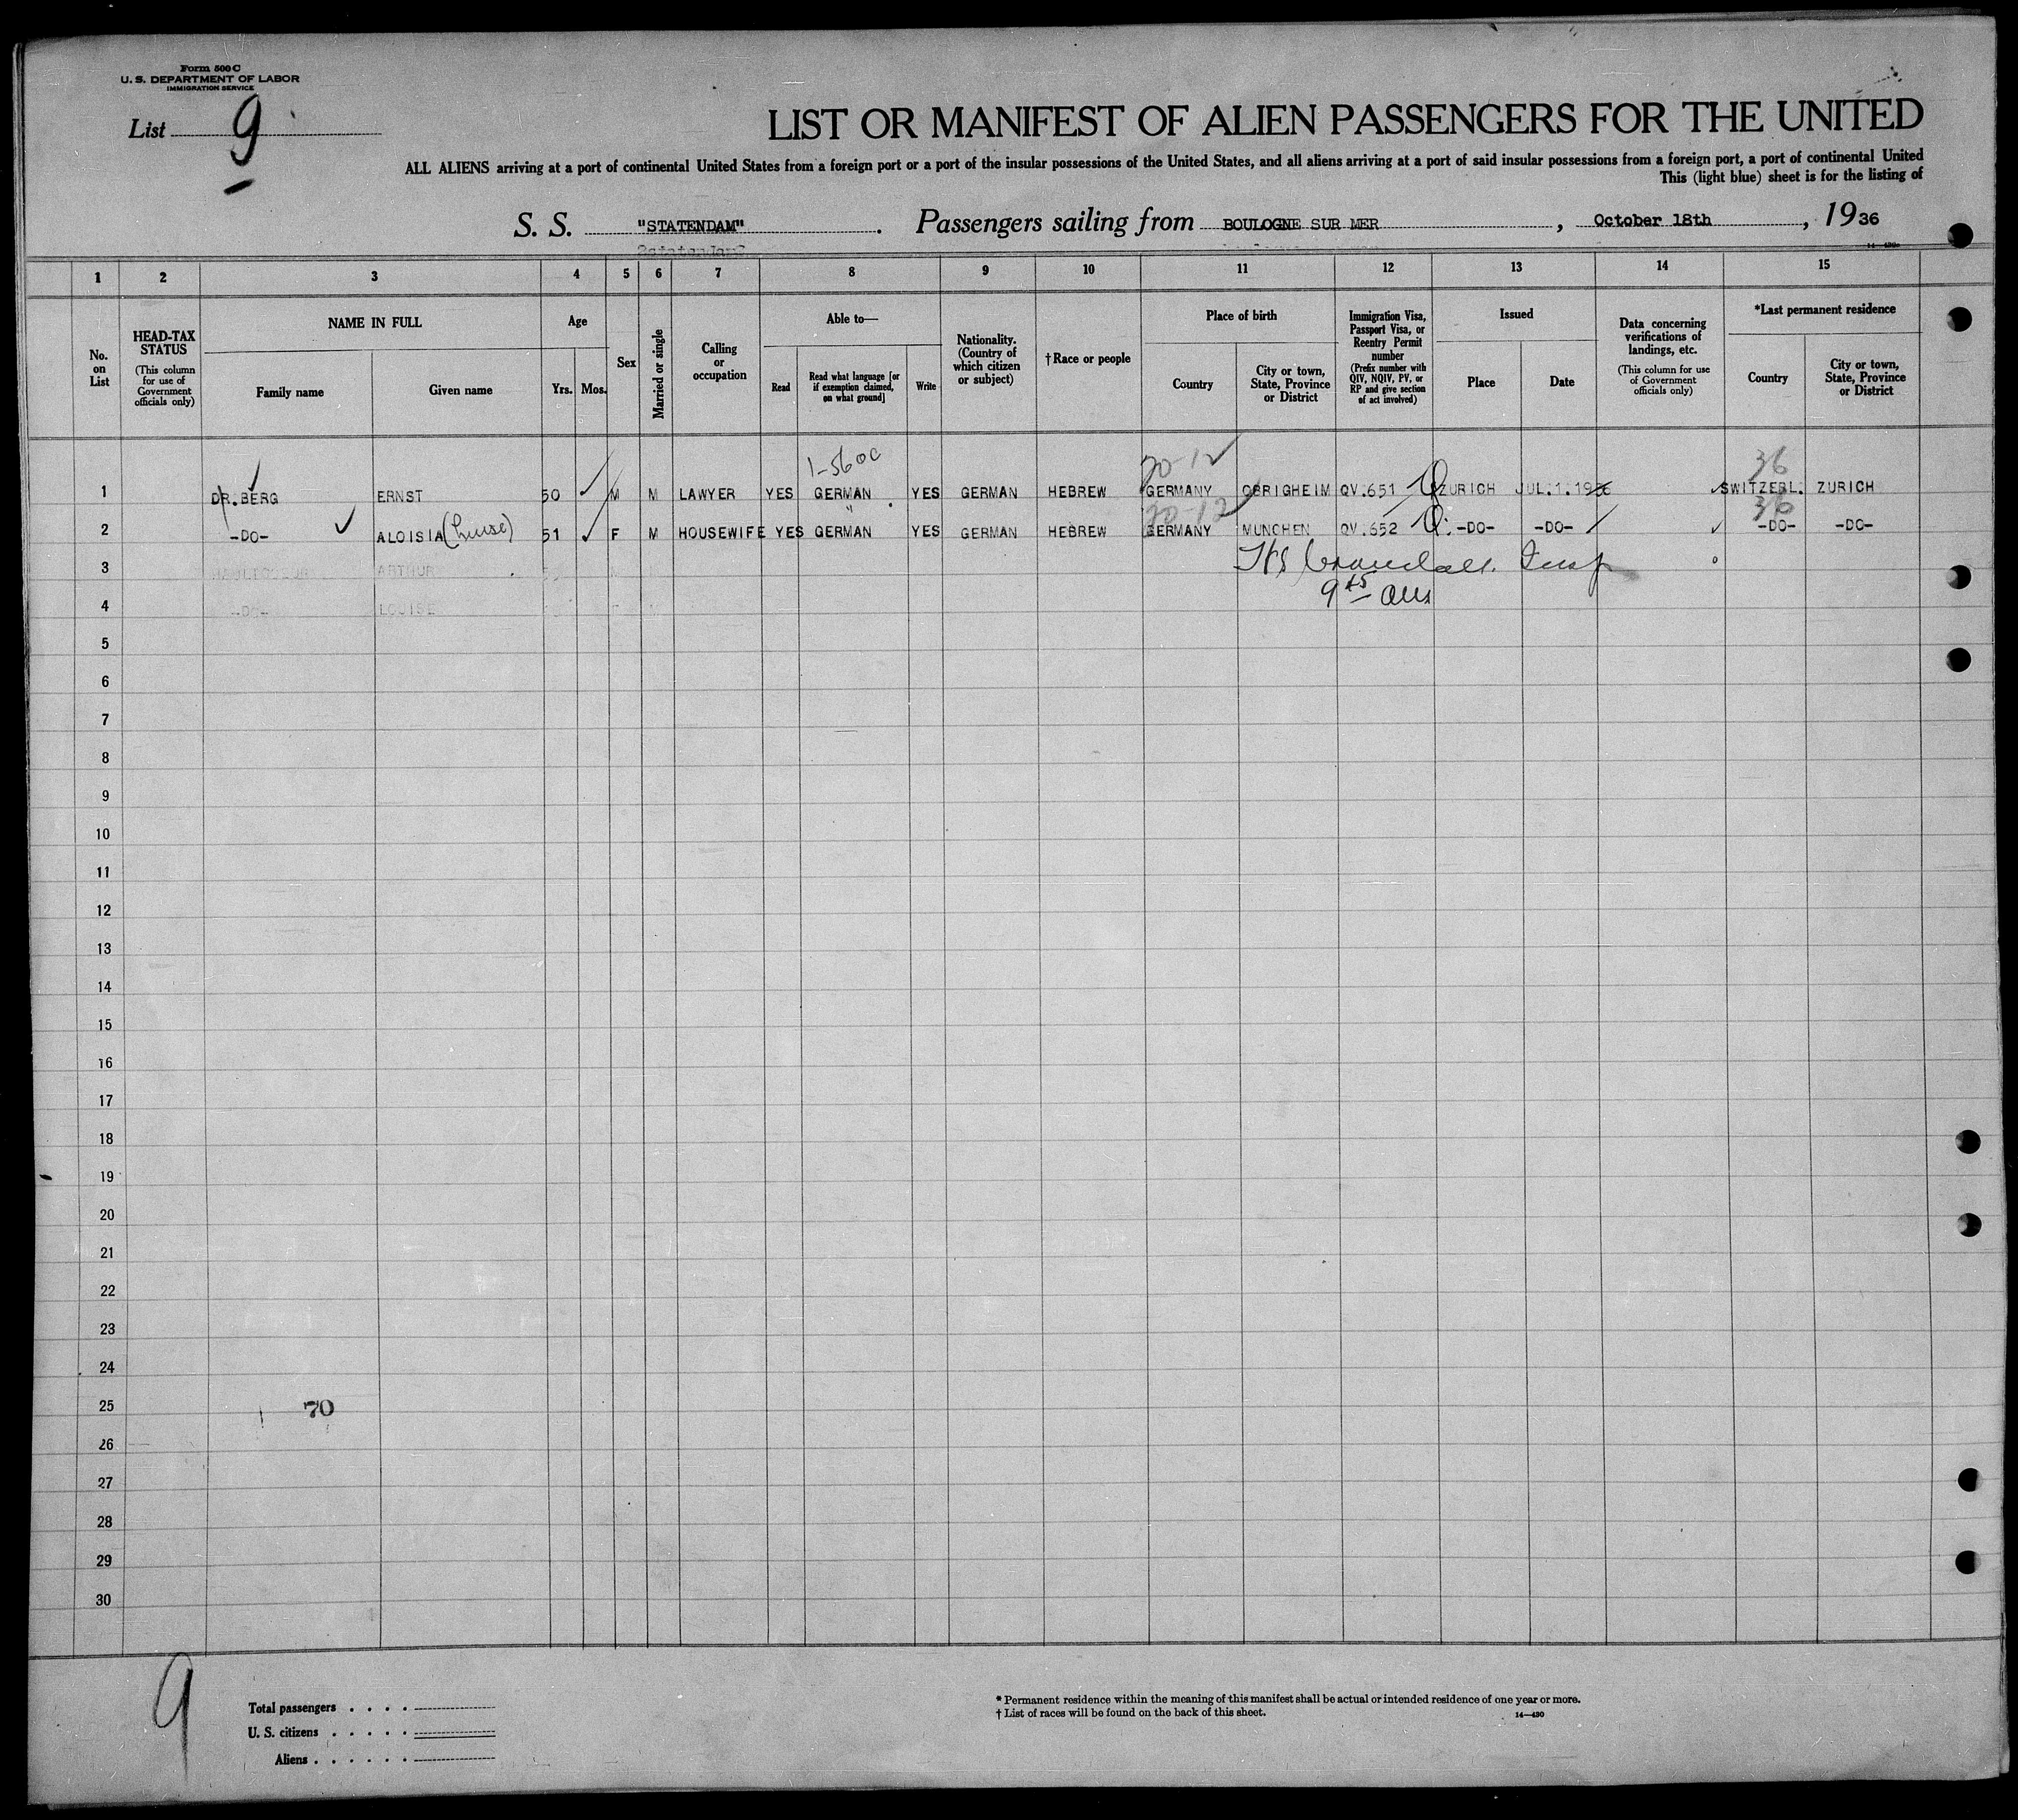 Form 500 C
U. S. DEPARTMENT OF LABOR
IMMIGRATION SERVICE
List 9
LIST OR MANIFEST OF ALIEN PASSENGERS FOR THE UNITED
ALL ALIENS arriving at a port of continental United States from a foreign port or a port of the insular possessions of the United States, and all aliens arriving at a port of said insular possessions from a foreign port, a port of continental United
This (light blue) sheet is for the listing of
S. S. "STATENDAM". Passengers sailing from BOULOGNE SUR MER, October 18th, 1936
1 2 3 4 5 6 7 8 9 10 11 12 13 14 15
No. on List
HEAD-TAX STATUS (This column for use of Government officials only)
NAME IN FULL
Family name
Given name
Age
Yrs. Mos.
Sex
Married or single
Calling or occupation
Able to—
Read
Read what language [or if exemption claimed, on what ground]
Write
Nationality. (Country of which citizen or subject)
† Race or people
Place of birth
Country
City or town, State, Province or District
Immigration Visa, Passport Visa, or Reentry Permit number (Prefix number with QIV, NQIV, PV, or RP and give section of act involved)
Issued
Place
Date
Data concerning verifications of landings, etc. (This column for use of Government officials only)
*Last permanent residence
Country
City or town, State, Province or District
1-5600 20-12 36
1 DR. BERG ERNST 50 M M LAWYER YES GERMAN YES GERMAN HEBREW GERMANY OBRIGHEIM QV.651 ZURICH JUL.1.1936 SWITZERL. ZURICH
" 20-12 36
2 -DO- ALOISIA (Luise) 51 F M HOUSEWIFE YES GERMAN YES GERMAN HEBREW GERMANY MUNCHEN QV.652 -DO- -DO- -DO- -DO-
3 ARTHUR Insp
4 -DO- LOUISE F M 9 45 am
5
6
7
8
9
10
11
12
13
14
15
16
17
18
19
20
21
22
23
24
25 70
26
27
28
29
30
9
Total passengers
U. S. citizens
Aliens
* Permanent residence within the meaning of this manifest shall be actual or intended residence of one year or more.
† List of races will be found on the back of this sheet.
14—430